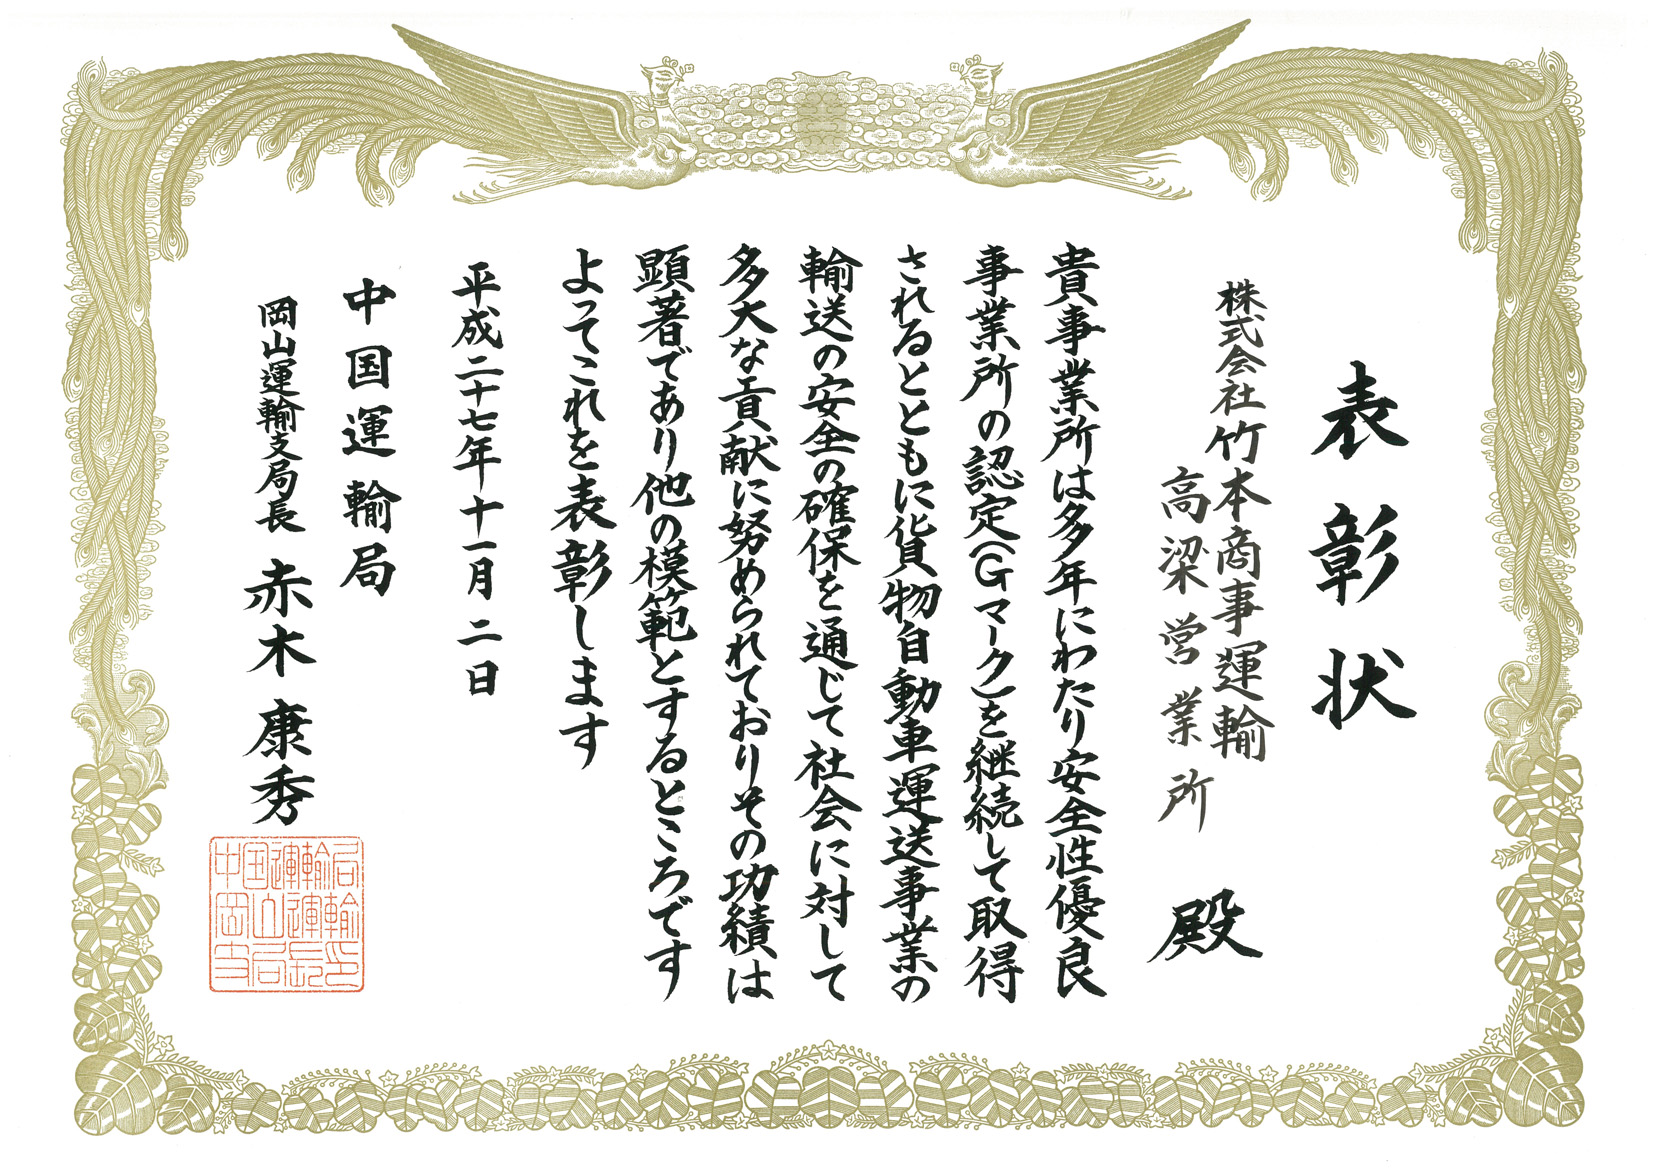 表彰状
株式会社竹本商事運輸
高梁営業所
殿
貴事業所は多年にわたり安全性優良
事業所の認定(Gマーク)を継続して取得
されるとともに貨物自動車運送事業の
輸送の安全の確保を通じて社会に対して
多大な貢献に努められておりその功績は
顕著であり他の模範とするところです
よってこれを表彰します
平成二十七年十一月二日
中国運輸局
岡山運輸支局長 赤木康秀
中国運輸局
岡山運輸
支局長印